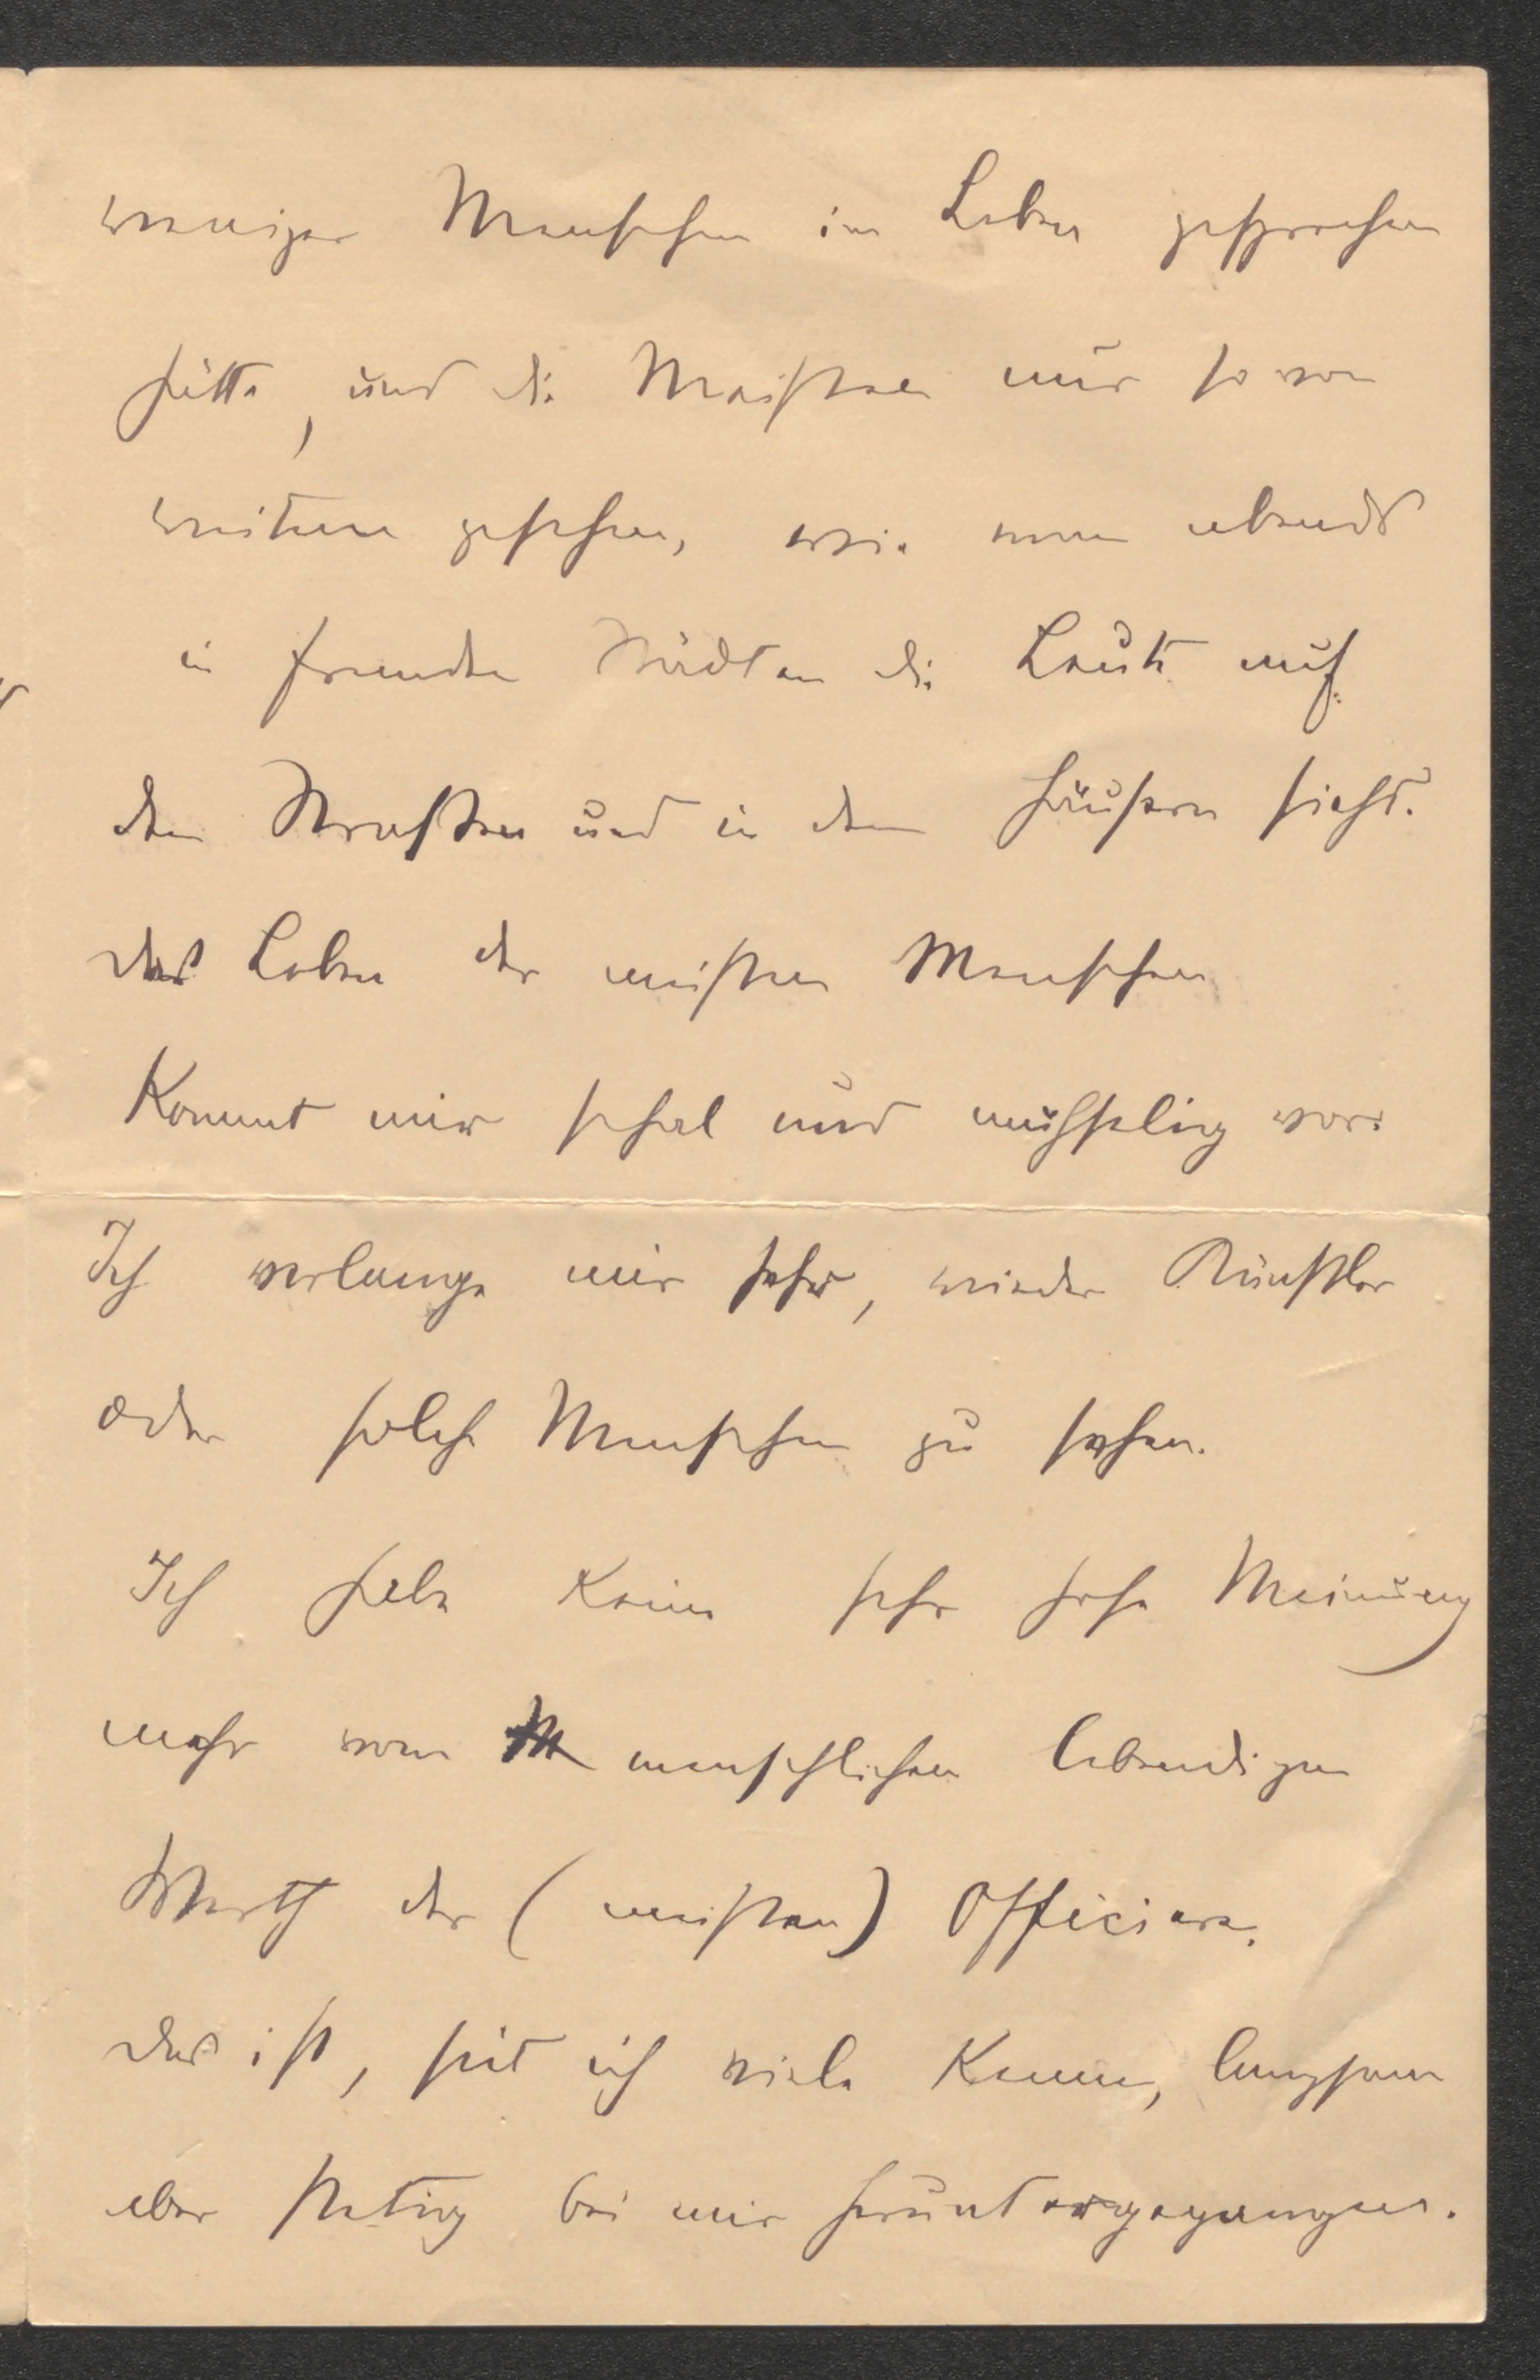 weniger Menschen im Leben gesprochen
hätte, und die Meisten nur so von
weitem gesehen, wie man abends
in fremden Städten die Leute auf
den Straßen und in den Häusern sieht.
das Leben der meisten Menschen
kommt mir schal und mühselig vor.
Ich verlange mir sehr, wieder Künstler
oder solche Menschen zu sehen.
Ich habe keine sehr hohe Meinung
mehr vom menschlichen lebendigen
Werth der (meisten) Officiere.
das ist, seit ich viele kenne, langsam
aber stetig bei mir heruntergegangen.